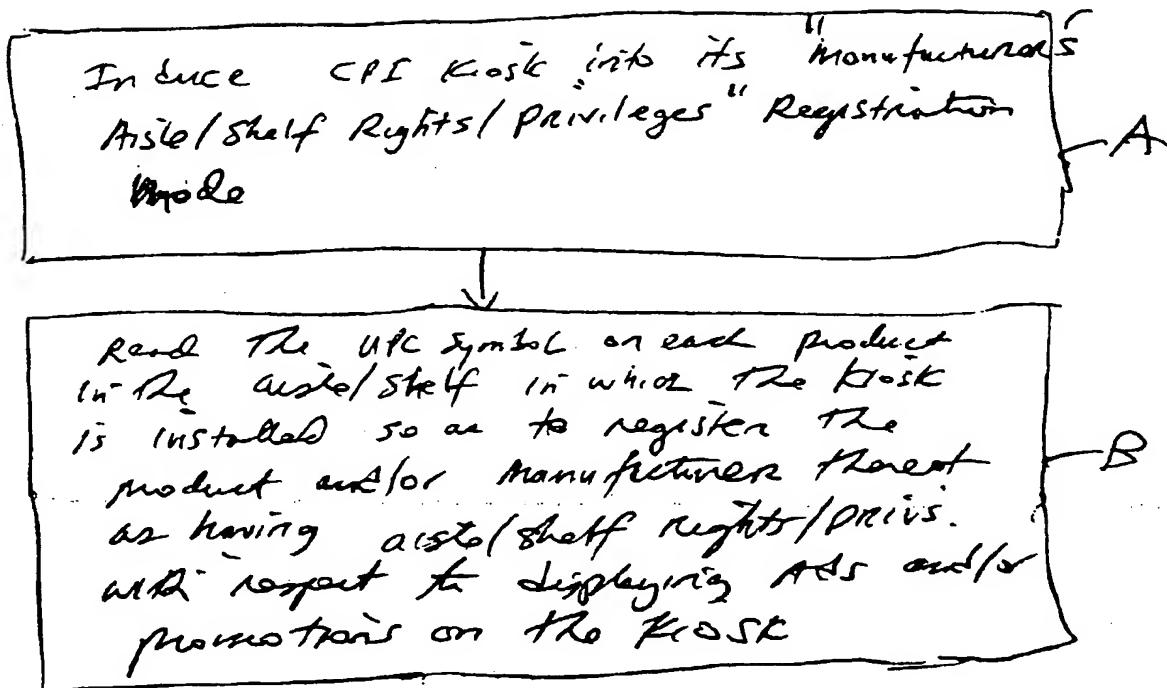 Induce CPI Kiosk into its "Manufacturer's
Aisle/Shelf Rights/Privileges" Registration
Mode
A
Read the UPC symbol on each product
in the aisle/shelf in which the kiosk
is installed so as to register the
product and/or manufacturer thereof
as having aisle/shelf rights/privs.
with respect to displaying Ads and/or
promotions on the kiosk
B